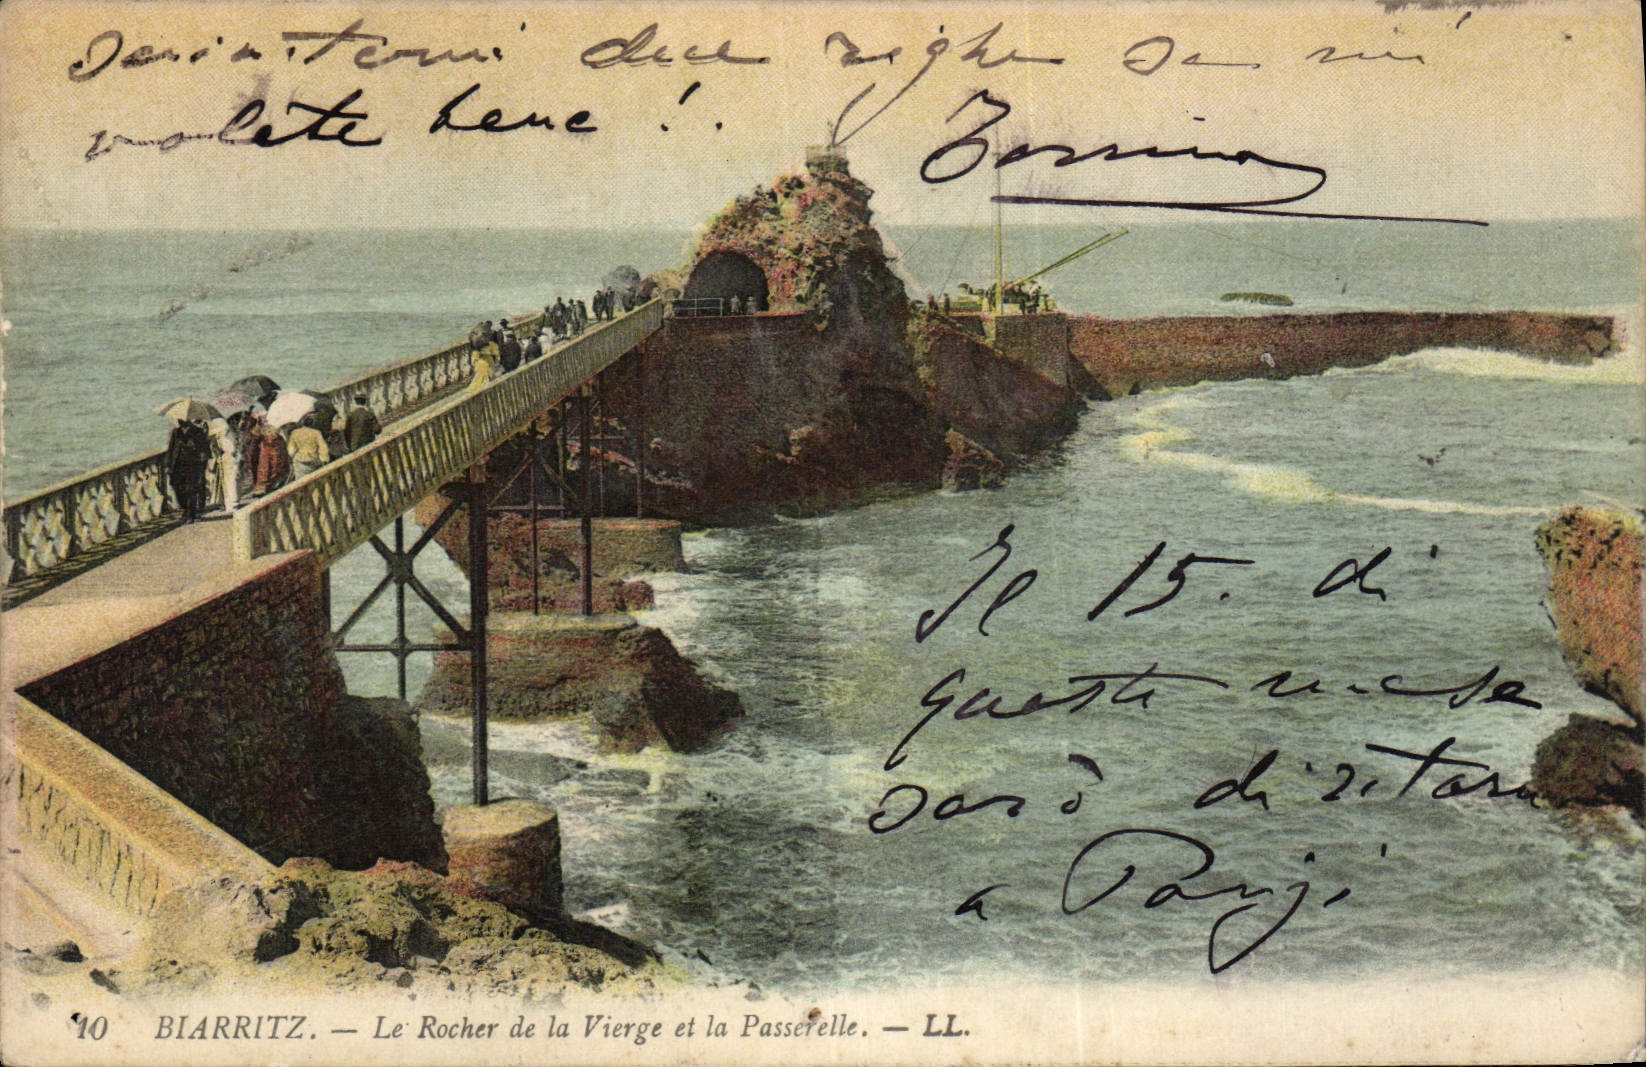 Scrivetemi due righe se mi
volete bene!.
Il 15. di
questo mese
sarò di ritorno
a Parigi
10 BIARRITZ. — Le Rocher de la Vierge et la Passerelle. — LL.